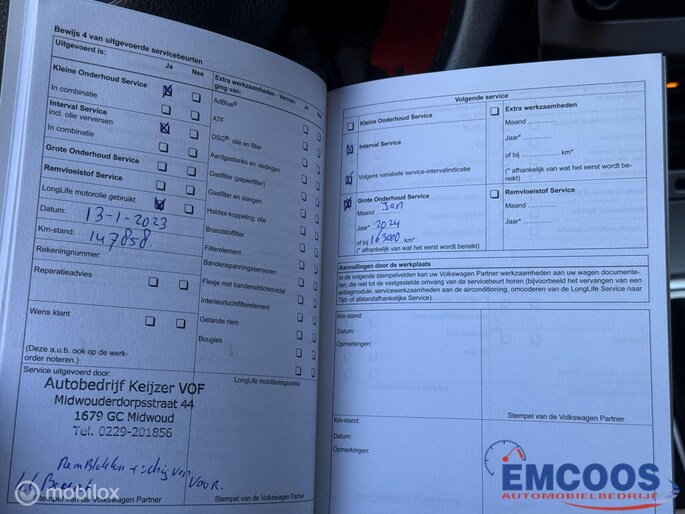 Bewijs 4 van uitgevoerde servicebeurten
Uitgevoerd is:
Ja
Nee
Kleine Onderhoud Service
In combinatie
Interval Service
incl. olie verversen
In combinatie
Grote Onderhoud Service
Remvloeistof Service
LongLife motorolie gebruikt
Datum: 13-1-2023
Km-stand: 147858.
Rekeningnummer:
Reparatieadvies
Wens klant
(Deze a.u.b. ook op de werk-
order noteren.)
Service uitgevoerd door:
Autobedrijf Keijzer VOF
Midwouderdorpsstraat 44
1679 GC Midwoud
Tel. 0229-201856
Remblokken + schijven
VOOR.
Stempel van de Volkswagen Partner
Extra werkzaamheden - Vervan-
ging van:
Ja
AdBlue®
ATF
DSG®, olie en filter
Aardgastanks en -leidingen
Gasfilter (papierfilter)
Gasfilter en slangen
Haldex-koppeling; olie
Brandstoffilter
Filterelement
Bandenspanningssensoren
Flesje met bandenafdichtmiddel
Interieurluchtfilterelement
Getande riem
Bougies
LongLife mobiliteitsgarantie:
Stempel van de Volkswagen Partner
Volgende service
Kleine Onderhoud Service
Interval Service
Volgens variabele service-intervalindicatie
Grote Onderhoud Service
Maand Jan
Jaar* 2024
of bij 163000 km*
(* afhankelijk van wat het eerst wordt bereikt)
Extra werkzaamheden
Maand
Jaar*
of bij km*
(* afhankelijk van wat het eerst wordt be-
reikt)
Remvloeistof Service
Maand
Jaar*
Aanvullingen door de werkplaats
In de volgende stempelvelden kan uw Volkswagen Partner werkzaamheden aan uw wagen documente-
ren, die niet tot de vastgestelde omvang van de servicebeurt horen (bijvoorbeeld het vervangen van een
airbagmodule, servicewerkzaamheden aan de airconditioning, omcoderen van de LongLife Service naar
Tijd- of afstandafhankelijke Service).
Km-stand:
Datum:
Opmerkingen:
Stempel van de Volkswagen Partner
Km-stand:
Datum:
Opmerkingen:
Stempel van de Volkswagen Partner
mobilox
EMCOOS
AUTOMOBIELBEDRIJF